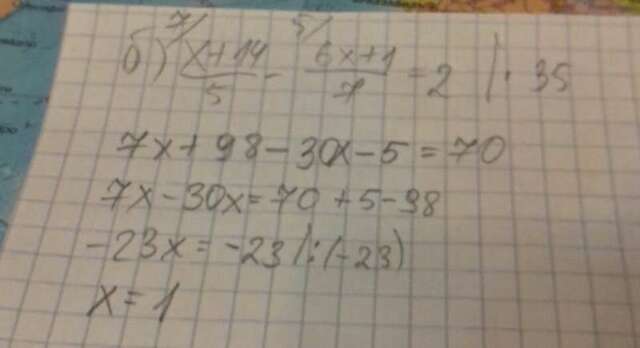 б) 7/ x+14/5 - 5/ 6x+1/7 = 2 | · 35
7x+98-30x-5=70
7x-30x=70+5-98
-23x=-23 |:(-23)
x=1